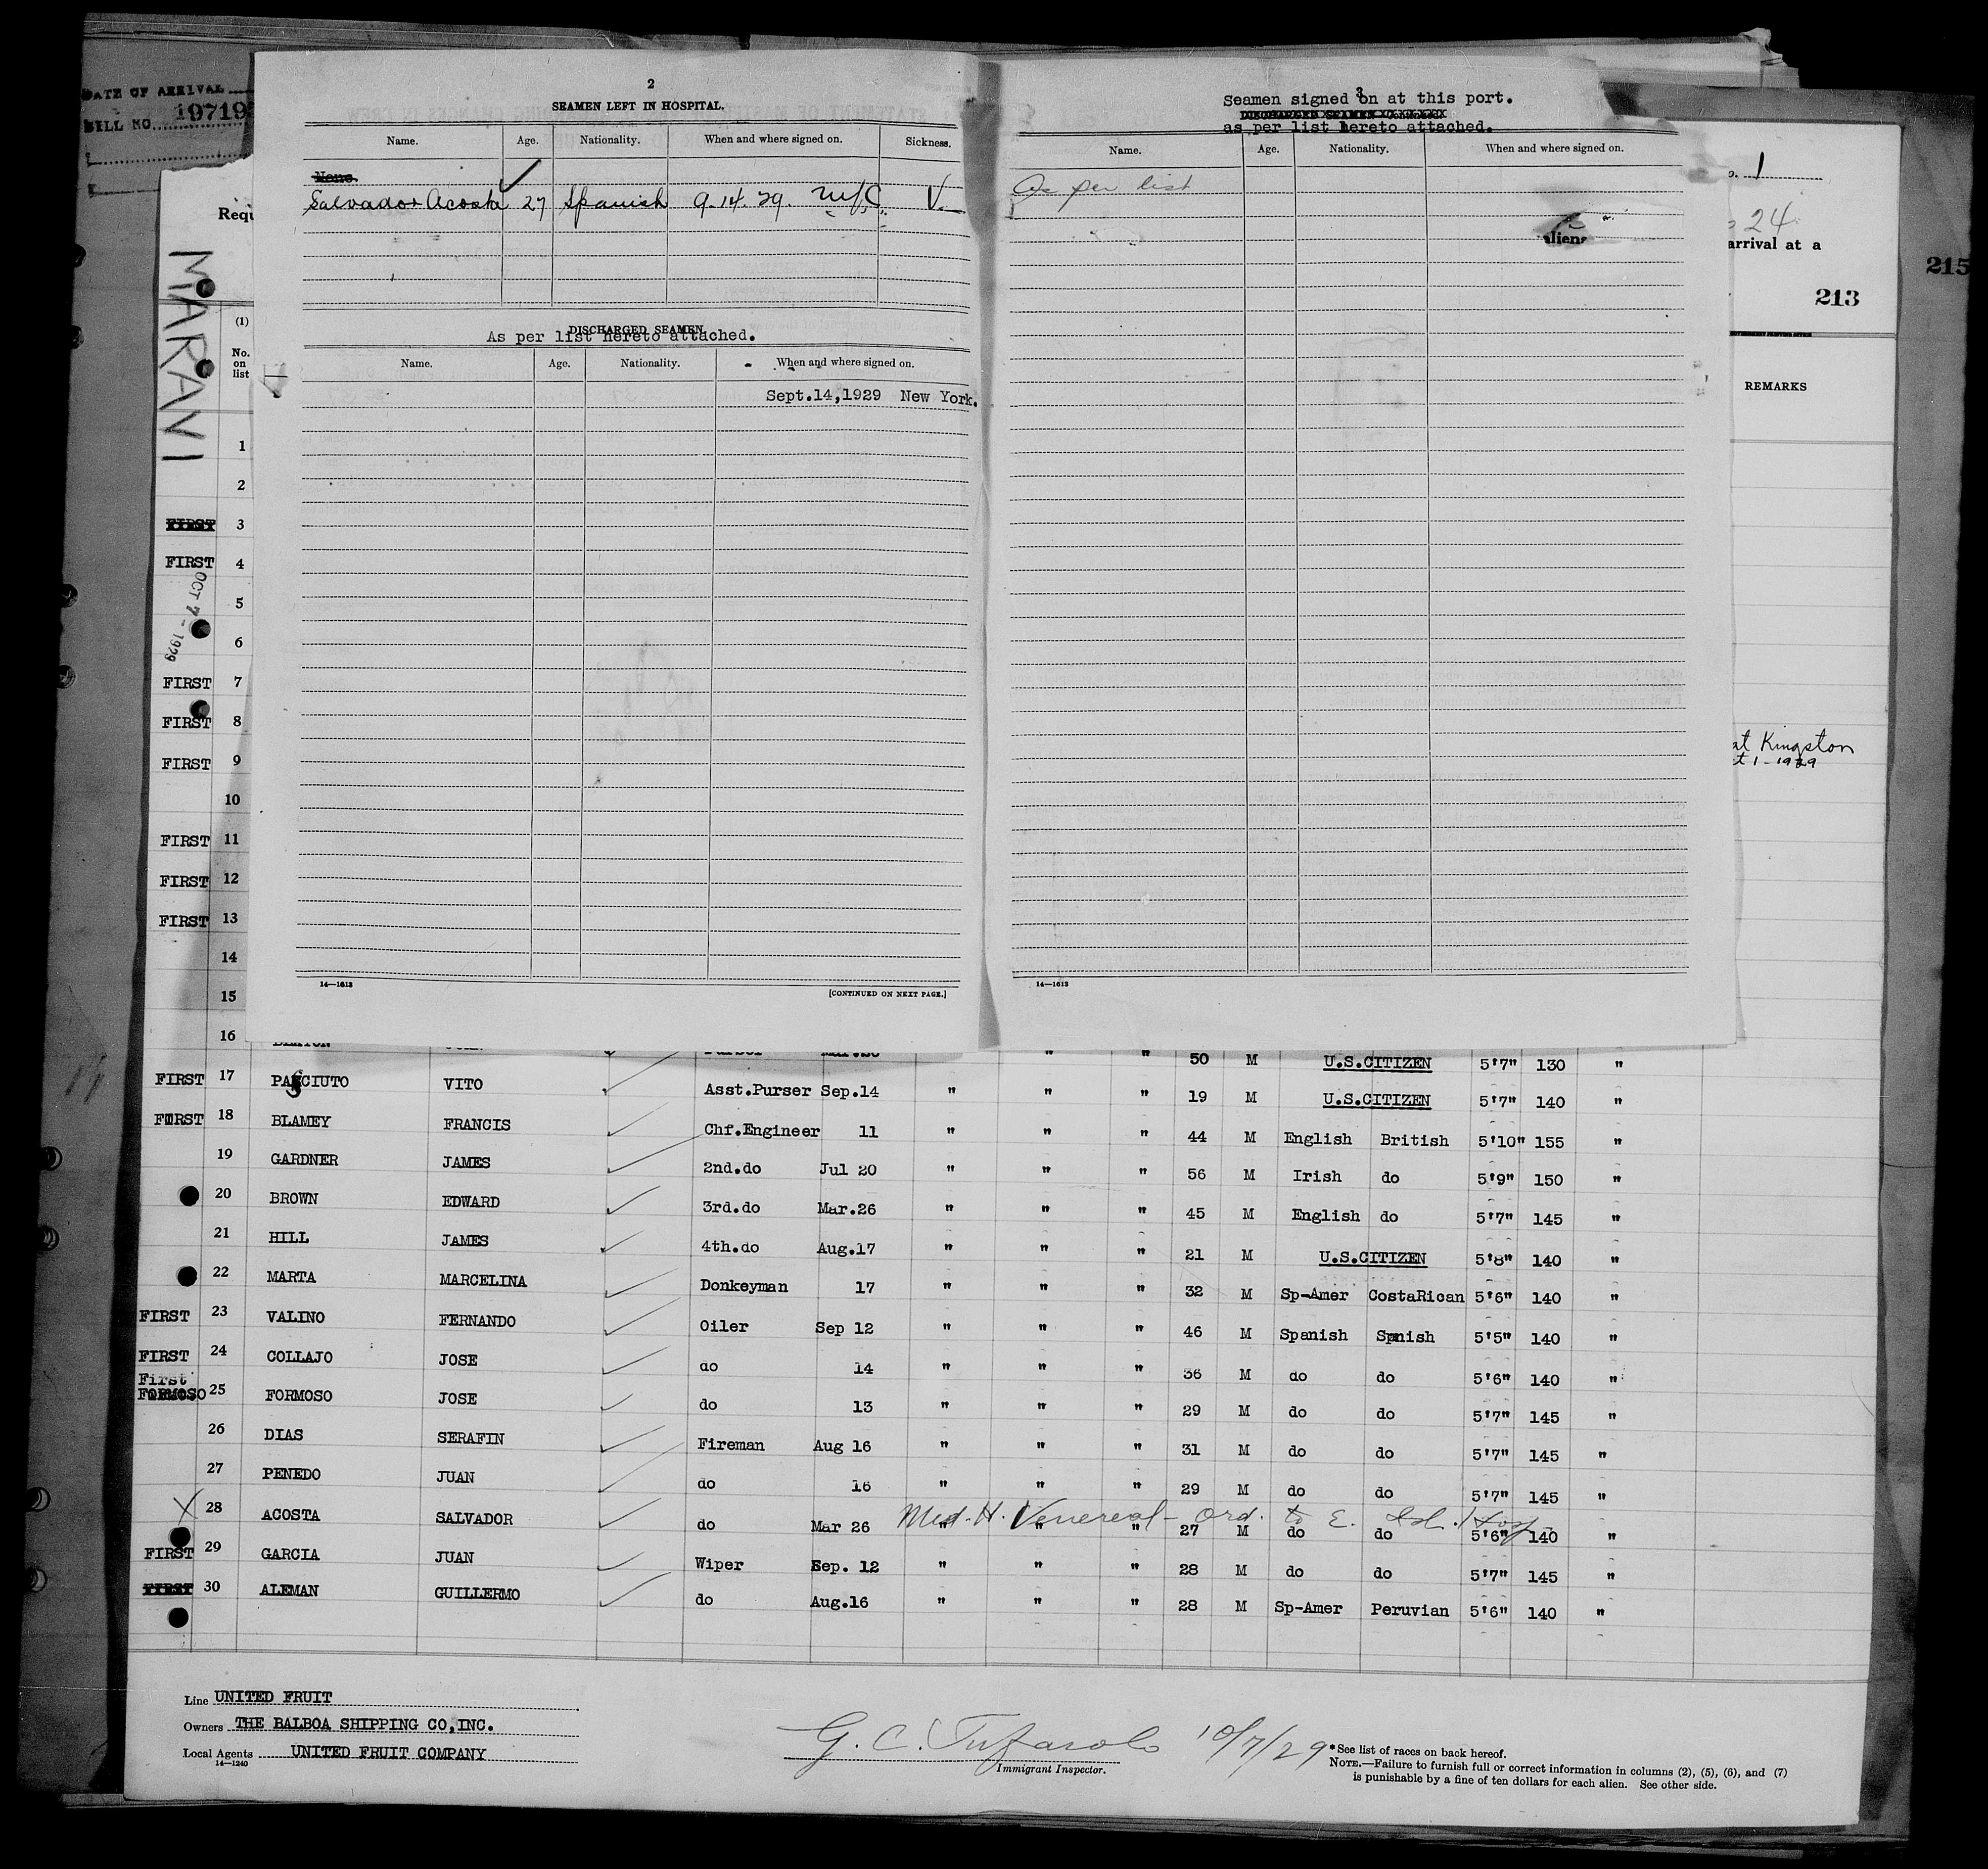 DATE OF ARRIVAL
BILL NO. 19719
Requ
MARAVI
OCT 7 - 1929
2
SEAMEN LEFT IN HOSPITAL.
Name. Age. Nationality. When and where signed on. Sickness.
None.
Salvador Acosta 27 Spanish 9.14.29. V.
DISCHARGED SEAMEN
As per list hereto attached.
Name. Age. Nationality. When and where signed on.
Sept.14,1929 New York.
14—1613
[CONTINUED ON NEXT PAGE.]
3
Seamen signed on at this port.
DISCHARGED SEAMEN
as per list hereto attached.
Name. Age. Nationality. When and where signed on.
As per list
aliens
14—1613
1
24
arrival at a
213
215
REMARKS
at Kingston
t 1-1929
(1)
No. on list
1
2
FIRST 3
FIRST 4
5
6
FIRST 7
FIRST 8
FIRST 9
10
FIRST 11
FIRST 12
FIRST 13
14
15
16 " " 50 M U.S.CITIZEN 5'7" 130 "
FIRST 17 PASCIUTO VITO Asst.Purser Sep.14 " " " 19 M U.S.CITIZEN 5'7" 140 "
FIRST 18 BLAMEY FRANCIS Chf.Engineer 11 " " " 44 M English British 5'10" 155 "
19 GARDNER JAMES 2nd.do Jul 20 " " " 56 M Irish do 5'9" 150 "
20 BROWN EDWARD 3rd.do Mar.26 " " " 45 M English do 5'7" 145 "
21 HILL JAMES 4th.do Aug.17 " " " 21 M U.S.CITIZEN 5'8" 140 "
22 MARTA MARCELINA Donkeyman 17 " " " 32 M Sp-Amer CostaRican 5'6" 140 "
FIRST 23 VALINO FERNANDO Oiler Sep 12 " " " 46 M Spanish Spnish 5'5" 140 "
FIRST 24 COLLAJO JOSE do 14 " " " 36 M do do 5'6" 140 "
First FORMOSO 25 FORMOSO JOSE do 13 " " " 29 M do do 5'7" 145 "
26 DIAS SERAFIN Fireman Aug 16 " " " 31 M do do 5'7" 145 "
27 PENEDO JUAN do 16 " " " 29 M do do 5'7" 145 "
Med. H. Venereal - Ord. to E. Isl. Hosp
X 28 ACOSTA SALVADOR do Mar 26 " " " 27 M do do 5'6" 140 "
FIRST 29 GARCIA JUAN Wiper Sep. 12 " " " 28 M do do 5'7" 145 "
FIRST 30 ALEMAN GUILLERMO do Aug.16 " " " 28 M Sp-Amer Peruvian 5'6" 140 "
Line UNITED FRUIT
Owners THE BALBOA SHIPPING CO,INC.
Local Agents UNITED FRUIT COMPANY
14—1240
G. C. Tufarolo 10/7/29
Immigrant Inspector.
*See list of races on back hereof.
NOTE.—Failure to furnish full or correct information in columns (2), (5), (6), and (7)
is punishable by a fine of ten dollars for each alien. See other side.